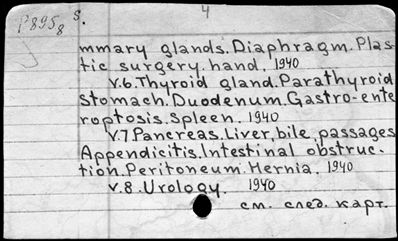 P8958 s. 4
mmary glands. Diaphragm. Plas-
tic surgery. hand. 1940
v.6. Thyroid gland. Parathyroid
Stomach. Duodenum. Gastro-ente
roptosis. Spleen. 1940
v.7. Pancreas. Liver, bile passages
Appendicitis. Intestinal obstruc-
tion. Peritoneum. Hernia. 1940
v.8. Urology. 1940
см. след. карт.